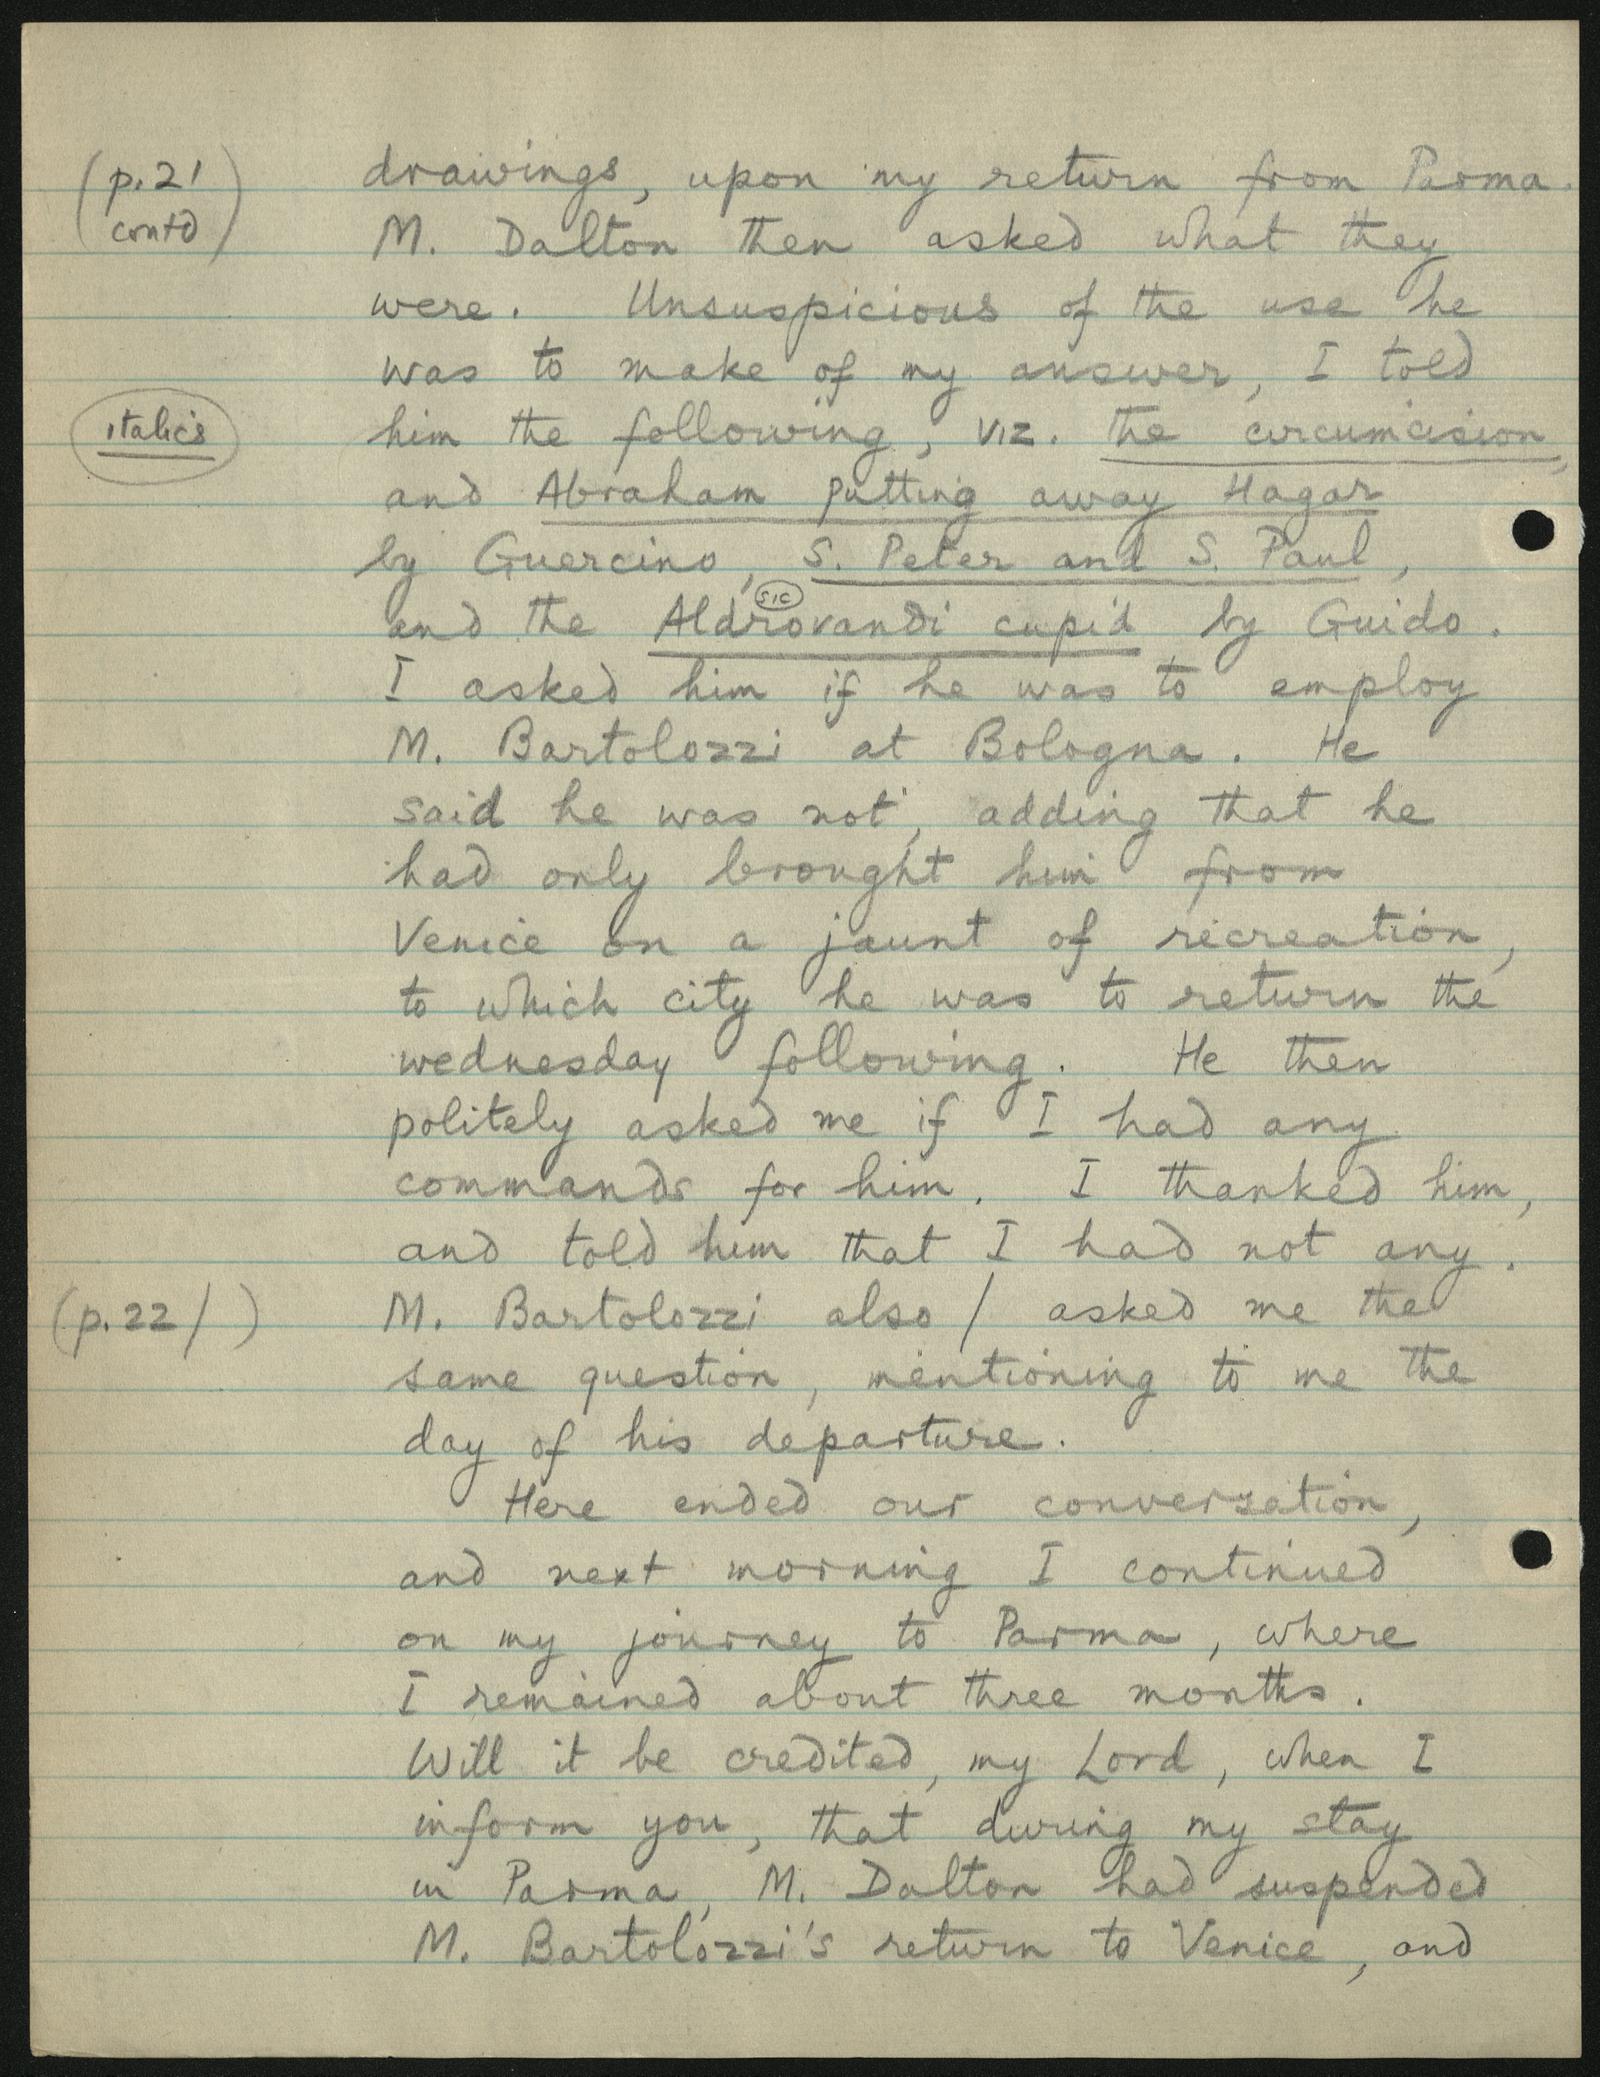 (p. 21 contd)
drawings, upon my return from Parma.
M. Dalton then asked what they
were. Unsuspicious of the use he
was to make of my answer, I told
italics
him the following, viz. the circumcision,
and Abraham putting away Hagar
by Guercino, S. Peter and S. Paul,
sic
and the Aldrovandi cupid by Guido.
I asked him if he was to employ
M. Bartolozzi at Bologna. He
said he was not, adding that he
had only brought him from
Venice on a jaunt of recreation,
to which city he was to return the
wednesday following. He then
politely asked me if I had any
commands for him. I thanked him,
and told him that I had not any.
(p. 22/ )
M. Bartolozzi also / asked me the
same question, mentioning to me the
day of his departure.
Here ended our conversation,
and next morning I continued
on my journey to Parma, where
I remained about three months.
Will it be credited, my Lord, when I
inform you, that during my stay
in Parma, M. Dalton had suspended
M. Bartolozzi's return to Venice, and